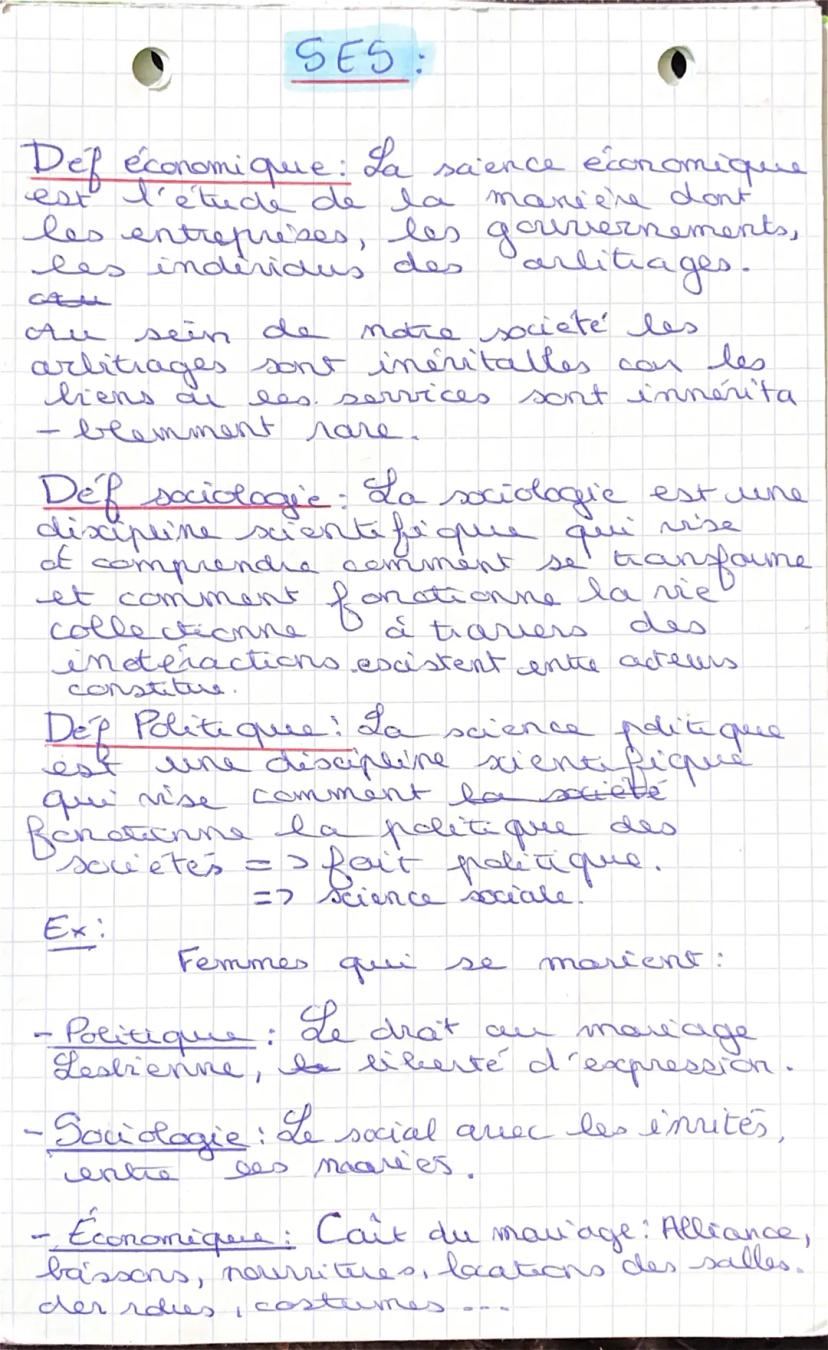 SES :
Déf économique : La science économique
est l'étude de la manière dont
les entreprises, les gouvernements,
les individus des arbitrages.
Au
Au sein de notre société les
arbitrages sont inévitables car les
biens ai les services sont innévita
- blemment rare.
Déf sociologie : La sociologie est une
discipline scientifique qui vise
à comprendre comment se transforme
et comment fonctionne la vie
collectionne à travers des
intéractions existent entre acteurs
constitue.
Déf Politique : La science politique
est une discipline scientifique
qui vise comment la société
fonctionne la politique des
sociétés => fait politique.
=> science sociale.
Ex :
Femmes qui se marient :
- Politique : Le droit au mariage
Lesbienne, la liberté d'expression.
- Sociologie : Le social avec les invités,
entre les mariés.
- Économique : Coût du mariage : Alliance,
boissons, nourritures, locations des salles.
der robes, costumes ...